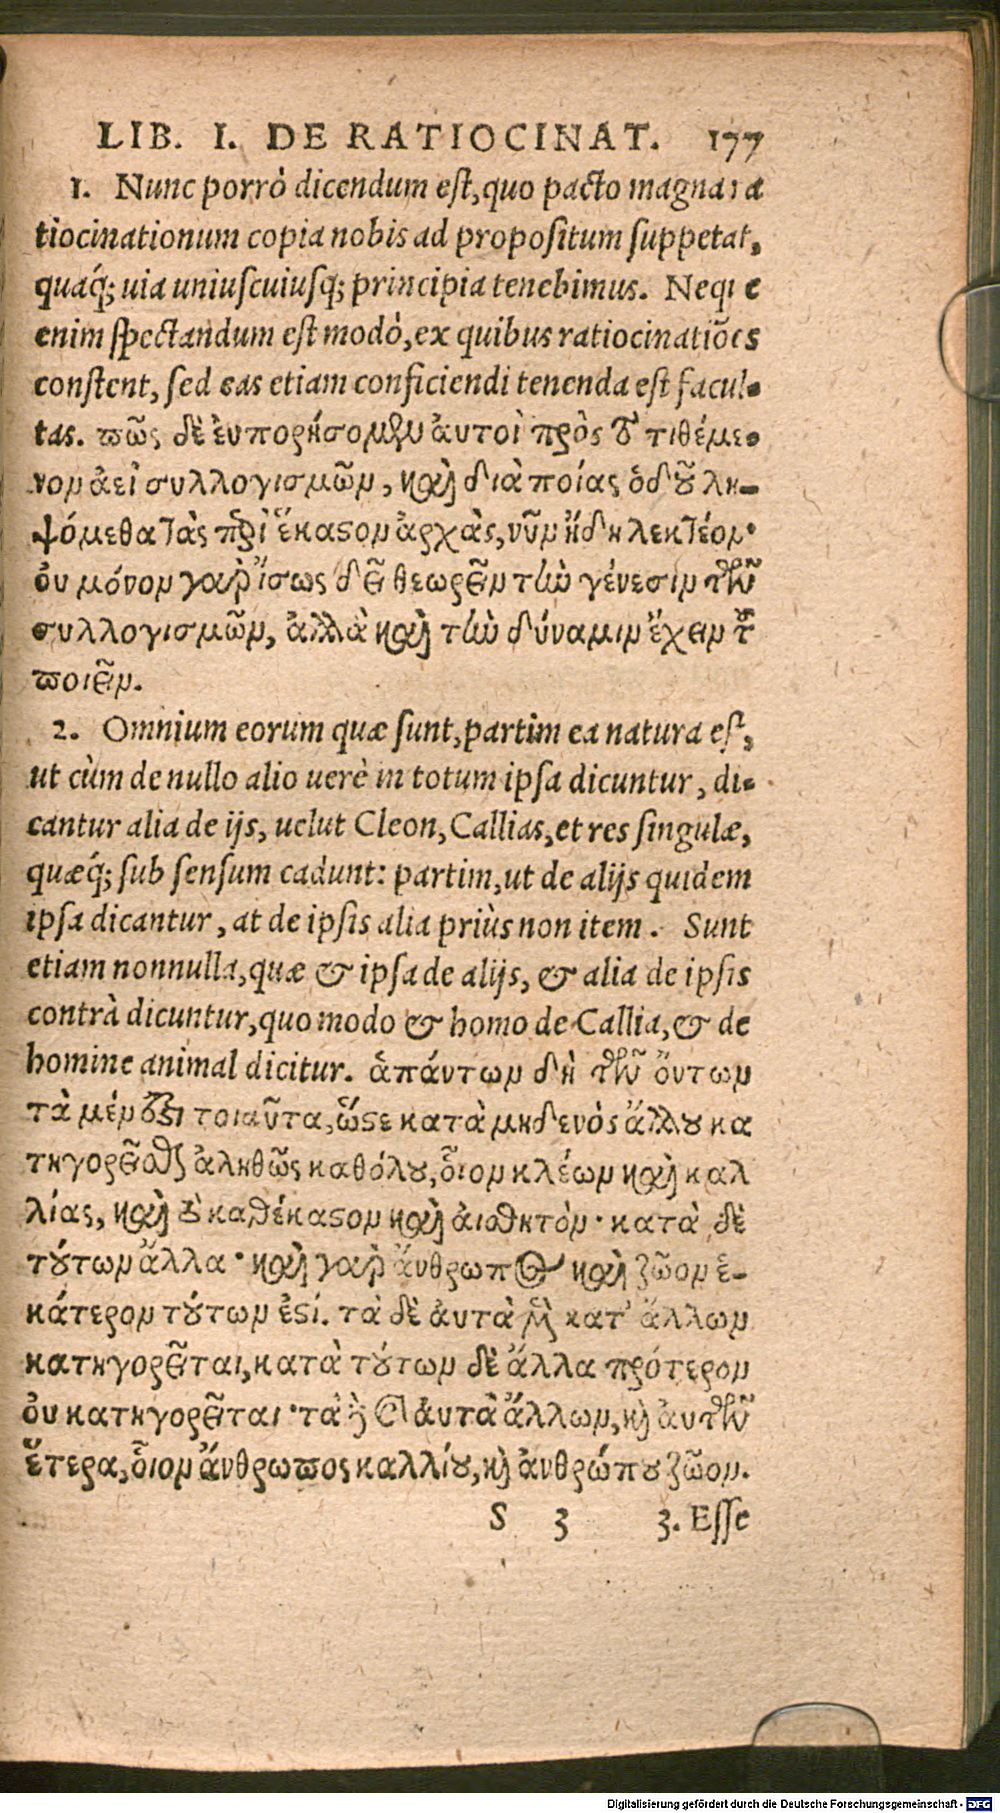 LIB. I. DE RATIOCINAT. 177
1. Nunc porrò dicendum est, quo pacto magna ra
tiocinationum copia nobis ad propositum suppetat,
quaq́; uia uniuscuiusq; principia tenebimus. Neque
enim spectandum est modò, ex quibus ratiocinatiões
constent, sed eas etiam conficiendi tenenda est facul-
tas. πῶς δὲ ἐυπορήσομεν ἀυτοὶ πρὸς τὸ τιθέμε-
νον ἀεὶ συλλογισμῶν, καὶ διὰ ποίας ὁδοῦ λη-
ψόμεθα τὰς περὶ ἕκαστον ἀρχὰς, νῦν ἤδη λεκτέον·
ὀυ μόνον γὰρ ἴσως δεῖ θεωρεῖν τὴν γένεσιν τῶν
συλλογισμῶν, ἀλλὰ καὶ τὴν δύναμιν ἔχειν τοῦ
ποιεῖν.
2. Omnium eorum quæ sunt, partim ea natura est,
ut cùm de nullo alio uerè in totum ipsa dicuntur, di-
cantur alia de ijs, uelut Cleon, Callias, et res singulæ,
quæq́; sub sensum cadunt: partim, ut de alijs quidem
ipsa dicantur, at de ipsis alia priùs non item. Sunt
etiam nonnulla, quæ & ipsa de alijs, & alia de ipsis
contrà dicuntur, quo modo & homo de Callia, & de
homine animal dicitur. ἁπάντων δὴ τῶν ὄντων
τὰ μέν ἐστι τοιαῦτα, ὥστε κατὰ μηδενὸς ἄλλου κα
τηγορεῖσθαι ἀληθῶς καθόλου, ὁῖον κλέων καὶ καλ
λίας, καὶ τὸ καθέκαστον καὶ ἀισθητὸν· κατὰ δὲ
τούτων ἄλλα· καὶ γὰρ ἄνθρωπος καὶ ζῶον ἑ-
κάτερον τούτων ἐστί. τὰ δὲ ἀυτὰ μὲν κατ' ἄλλων
κατηγορεῖται, κατὰ τούτων δὲ ἄλλα πρότερον
ὀυ κατηγορεῖται· τὰ δὲ καὶ ἀυτὰ ἄλλων, καὶ ἀυτῶν
ἕτερα, ὁῖον ἄνθρωπος καλλίου, καὶ ἀνθρώπου ζῶον.
S 3 3. Esse
Digitalisierung gefördert durch die Deutsche Forschungsgemeinschaft - DFG